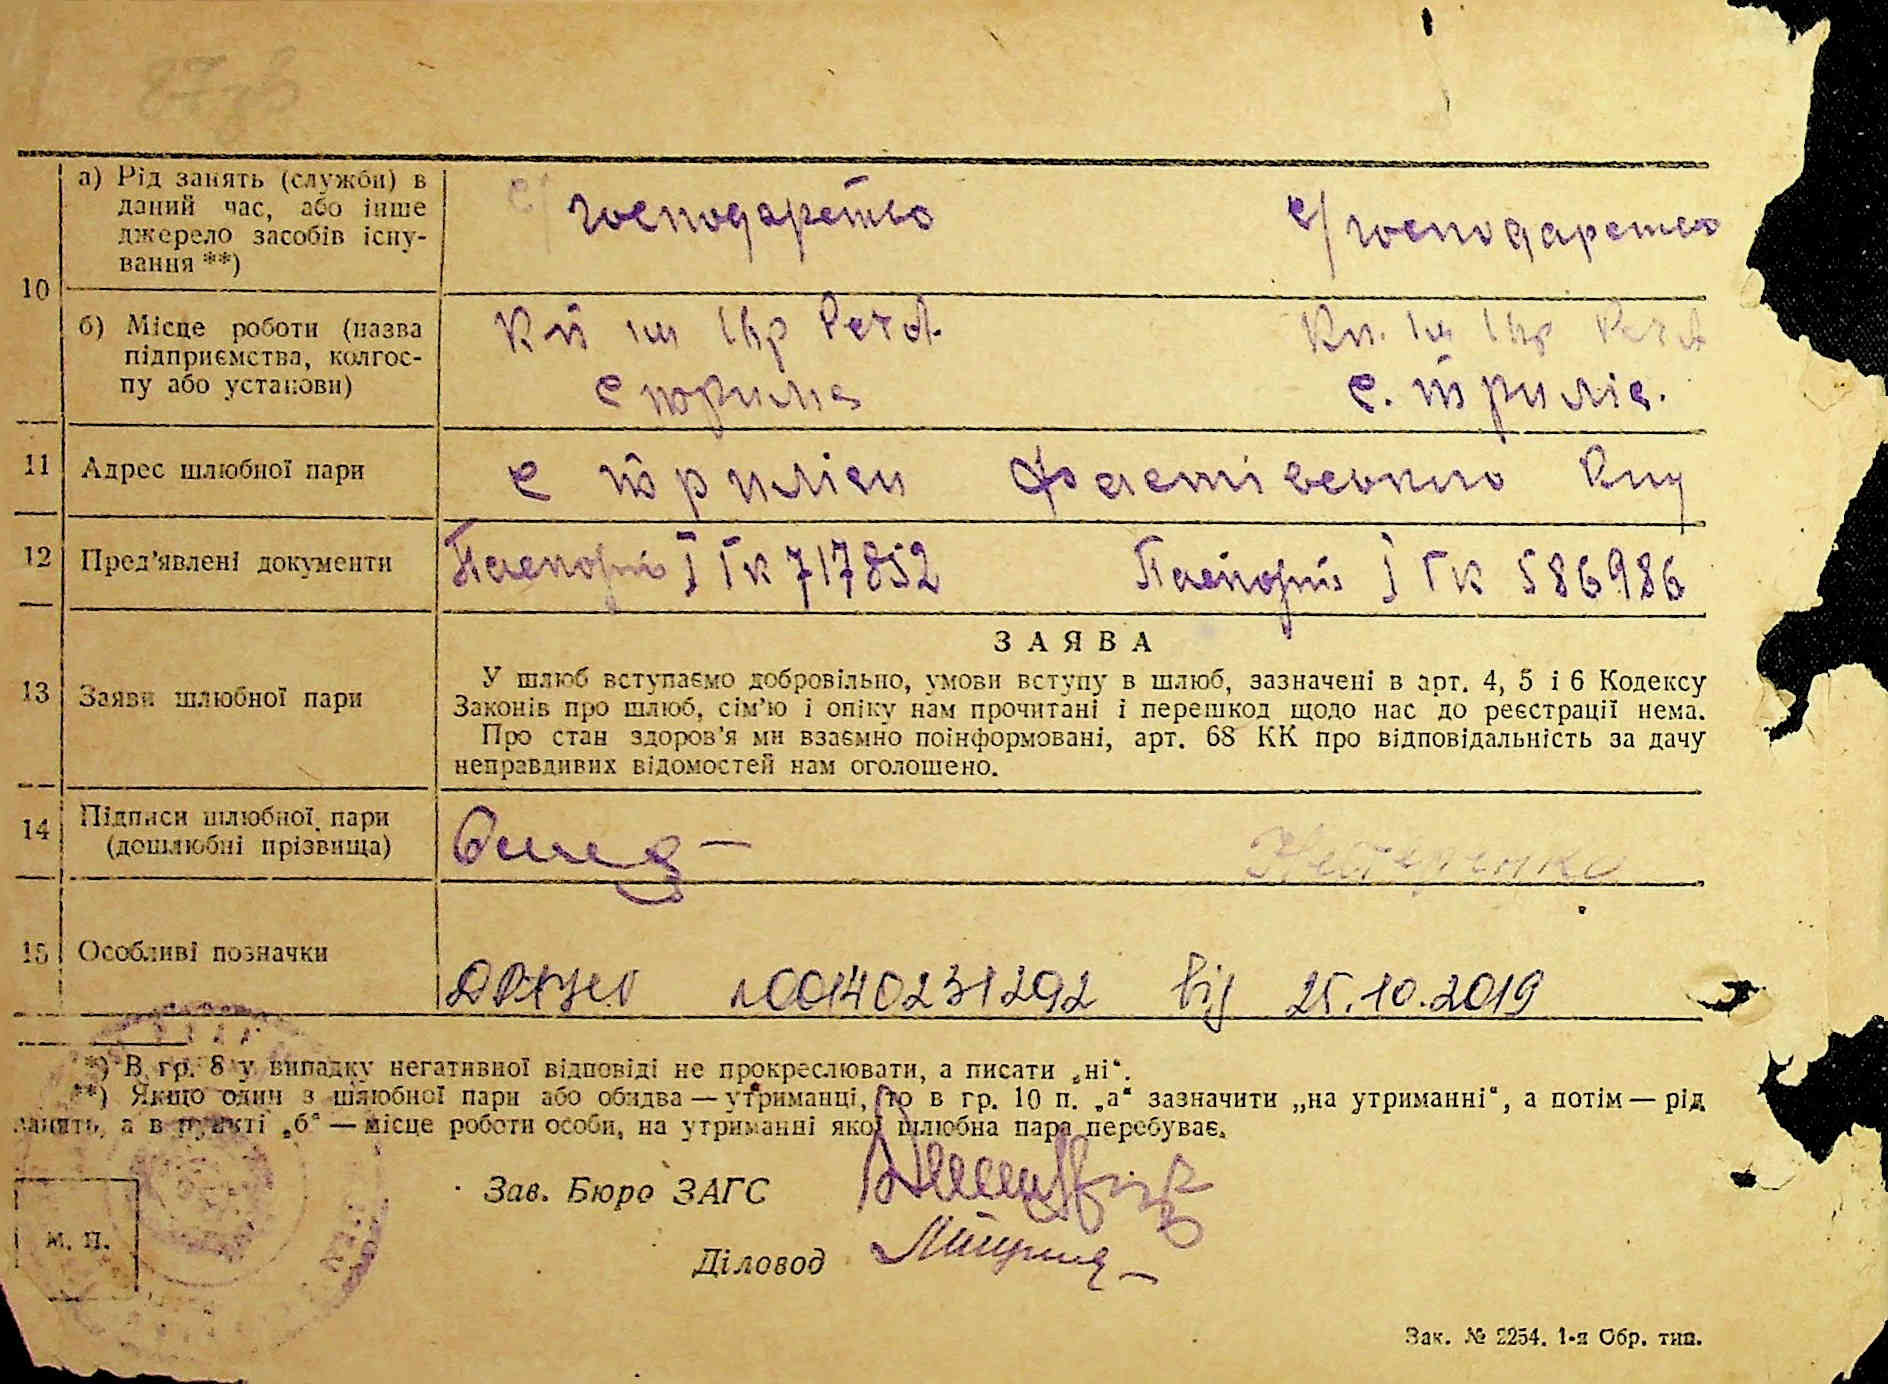 а) Рід занять (служби) в
даний час, або інше
джерело засобів існу-
вання **)
с/ господарство
с/ господарство
10
б) Місце роботи (назва
підприємства, колгос-
пу або установи)
с.
11
Адрес шлюбної пари
с Трилiси Фастівського
12
Пред'явлені документи
Паспорт І ГК 717852
Паспорт І ГК 586986
13
Заяви шлюбної пари
ЗАЯВА
У шлюб вступаємо добровільно, умови вступу в шлюб, зазначені в арт. 4, 5 і 6 Кодексу
Законів про шлюб, сім'ю і опіку нам прочитані і перешкод щодо нас до реєстрації нема.
Про стан здоров'я ми взаємно поінформовані, арт. 68 КК про відповідальність за дачу
неправдивих відомостей нам оголошено.
14
Підписи шлюбної пари
(дошлюбні прізвища)
Нестеренко
15
Особливі позначки
ДРАЦС 00140231292 від 25.10.2019
*) В гр. 8 у випадку негативної відповіді не прокреслювати, а писати „ні“.
**) Якщо один з шлюбної пари або обидва — утриманці, то в гр. 10 п. „а“ зазначити „на утриманні“, а потім — рід
занять, а в пункті „б“ — місце роботи особи, на утриманні якої шлюбна пара перебуває.
Зав. Бюро ЗАГС
м. п.
Діловод
Зак. № 2254. 1-я Обр. тип.